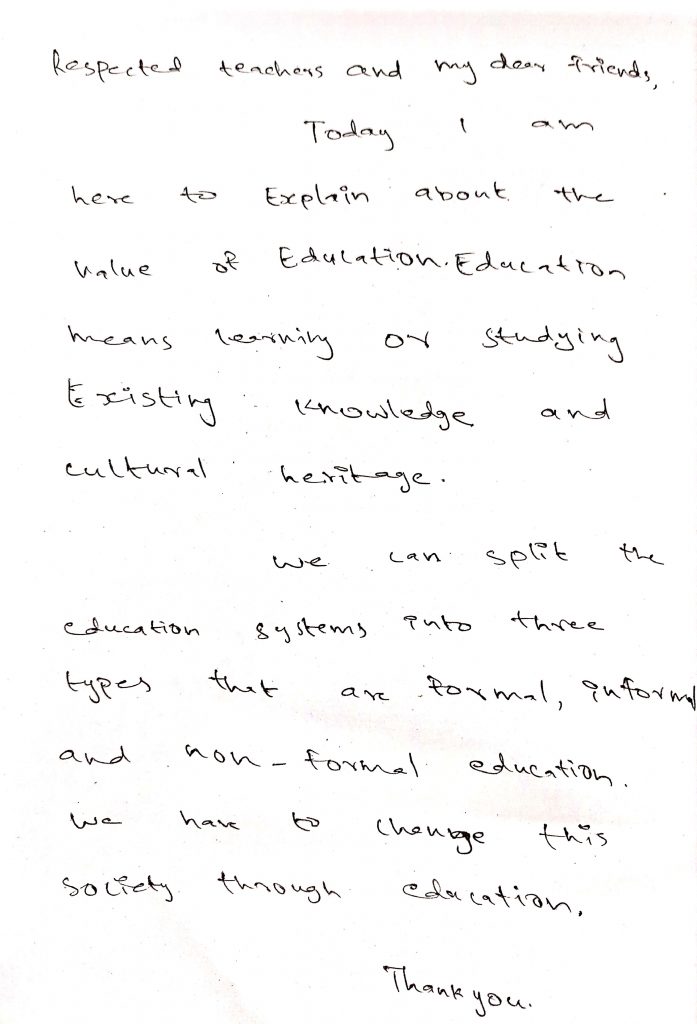 Respected teachers and my dear friends,
Today I am
here to Explain about the
value of Education. Education
means learning or studying
Existing knowledge and
cultural heritage.
we can split the
education systems into three
types that are formal, informal
and non-formal education.
we have to change this
society through education.
Thank you.